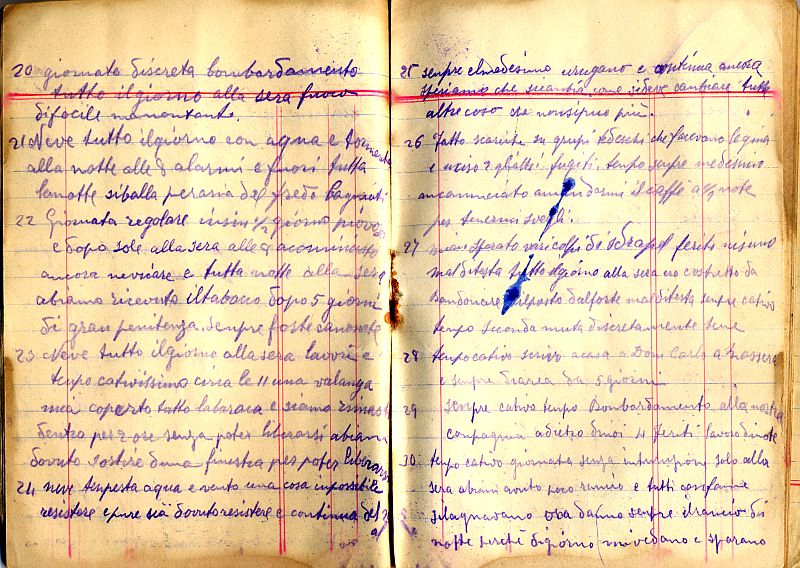 20 giornata discreta bombardamento
tutto il giorno alla sera fuoco
difocile manontant.
21 Neve tutto ilgiorno con aqua e tormenta
alla notte alle 8 alarmi e fuori tutta
lanotte siballa peraria del fredo bagniati
22 Giornata regolare insin ½ giorno piovoso
e dopo sole alla sera alle 8 acominciato
ancora nevicare e tutta notte alla sera
abiamo ricevuto iltabacco dopo 5 giorni
di gran penitenza. senpre foste canonate
23 Neve tutto ilgiorno alla sera lavoré e
tenpo cativissimo circa le 11 una valanga
mia coperto tutto labaraca e siamo rimasti
dentro per 2 ore senza poter liberarsi abiamo
dovuto sortire duna finestra per poter liberarsi
24 neve tenpesta aqua e vento una cosa inpossibile
resistere epure sia dovuto resistere e continua del 25
al
25 senpre elmedesimo urugano e continua ancora
speriamo che sicambia, come sideve cambiare tutte
altre coso che nonsipuo più.
26 Fatto scariche su grupi tedeschi che facevano legnia
e uciso 2 glialtri fugiti. tempo senpre medesimo
ancominciato anche darmi il caffè a ½ note
per tenermi svegli.
27 sperato vari colpi di sdrapel feriti nisuno
mal ditesta tutto ilgiorno alla sera cio costretto da
Bandonare ilposto dalforte mal ditesta senpre cativo
tenpo seconda muta discretamente bene
28 tenpo cativo scrivo acasa a Don Carlo a
e senpre diarea da 5 giorni
29 senpre cativo tenpo Bonbardamento alla nostra
conpagnia adietro dinoi 4 feriti lavoro dinote
30 tenpo cativo giornata senza intiruzione solo alla
sera abiamo avuto poco rancio e tutti confame
silagnavano ora danno senpre ilrancio di
notte perchè digiorno mivedano e sparano